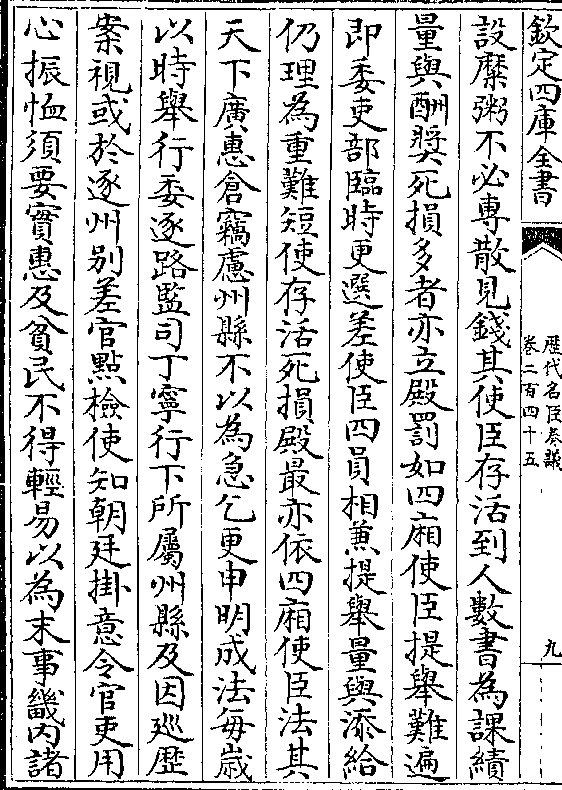 欽定四庫全書
歷代名臣奏議
卷二百四十五
九
設糜粥不必專散見錢其使臣存活到人數書為課績
量與酬獎死損多者亦立殿罰如四廂使臣提舉難遍
即委吏部臨時更選差使臣四員相兼提舉量與添給
仍理為重難短使存活死損殿最亦依四廂使臣法其
天下廣惠倉竊慮州縣不以為急乞更申明成法每歲
以時舉行委逐路監司丁寧行下所屬州縣及因廵歷
案視或於逐州别差官點檢使知朝廷掛意令官吏用
心振恤須要實惠及貧民不得輕易以為末事畿内諸